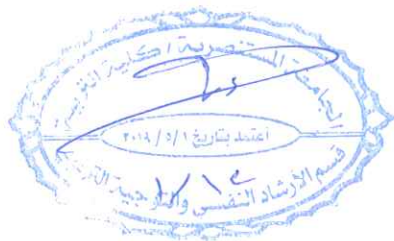 الجامعة المستنصرية / كلية التربية
أعتمد بتاريخ ٢٠١٨/٥/١
قسم الارشاد النفسي والتوجيه التربوي